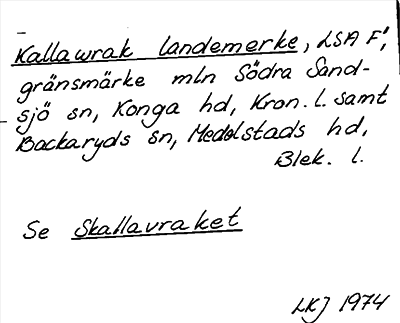 Kallawrak landemerke, LSA F',
gränsmärke mln Södra Sand-
sjö sn, Konga hd, Kron. l. samt
Backaryds sn, Medelstads hd,
Blek. l.
Se Skallavraket
LKJ 1974